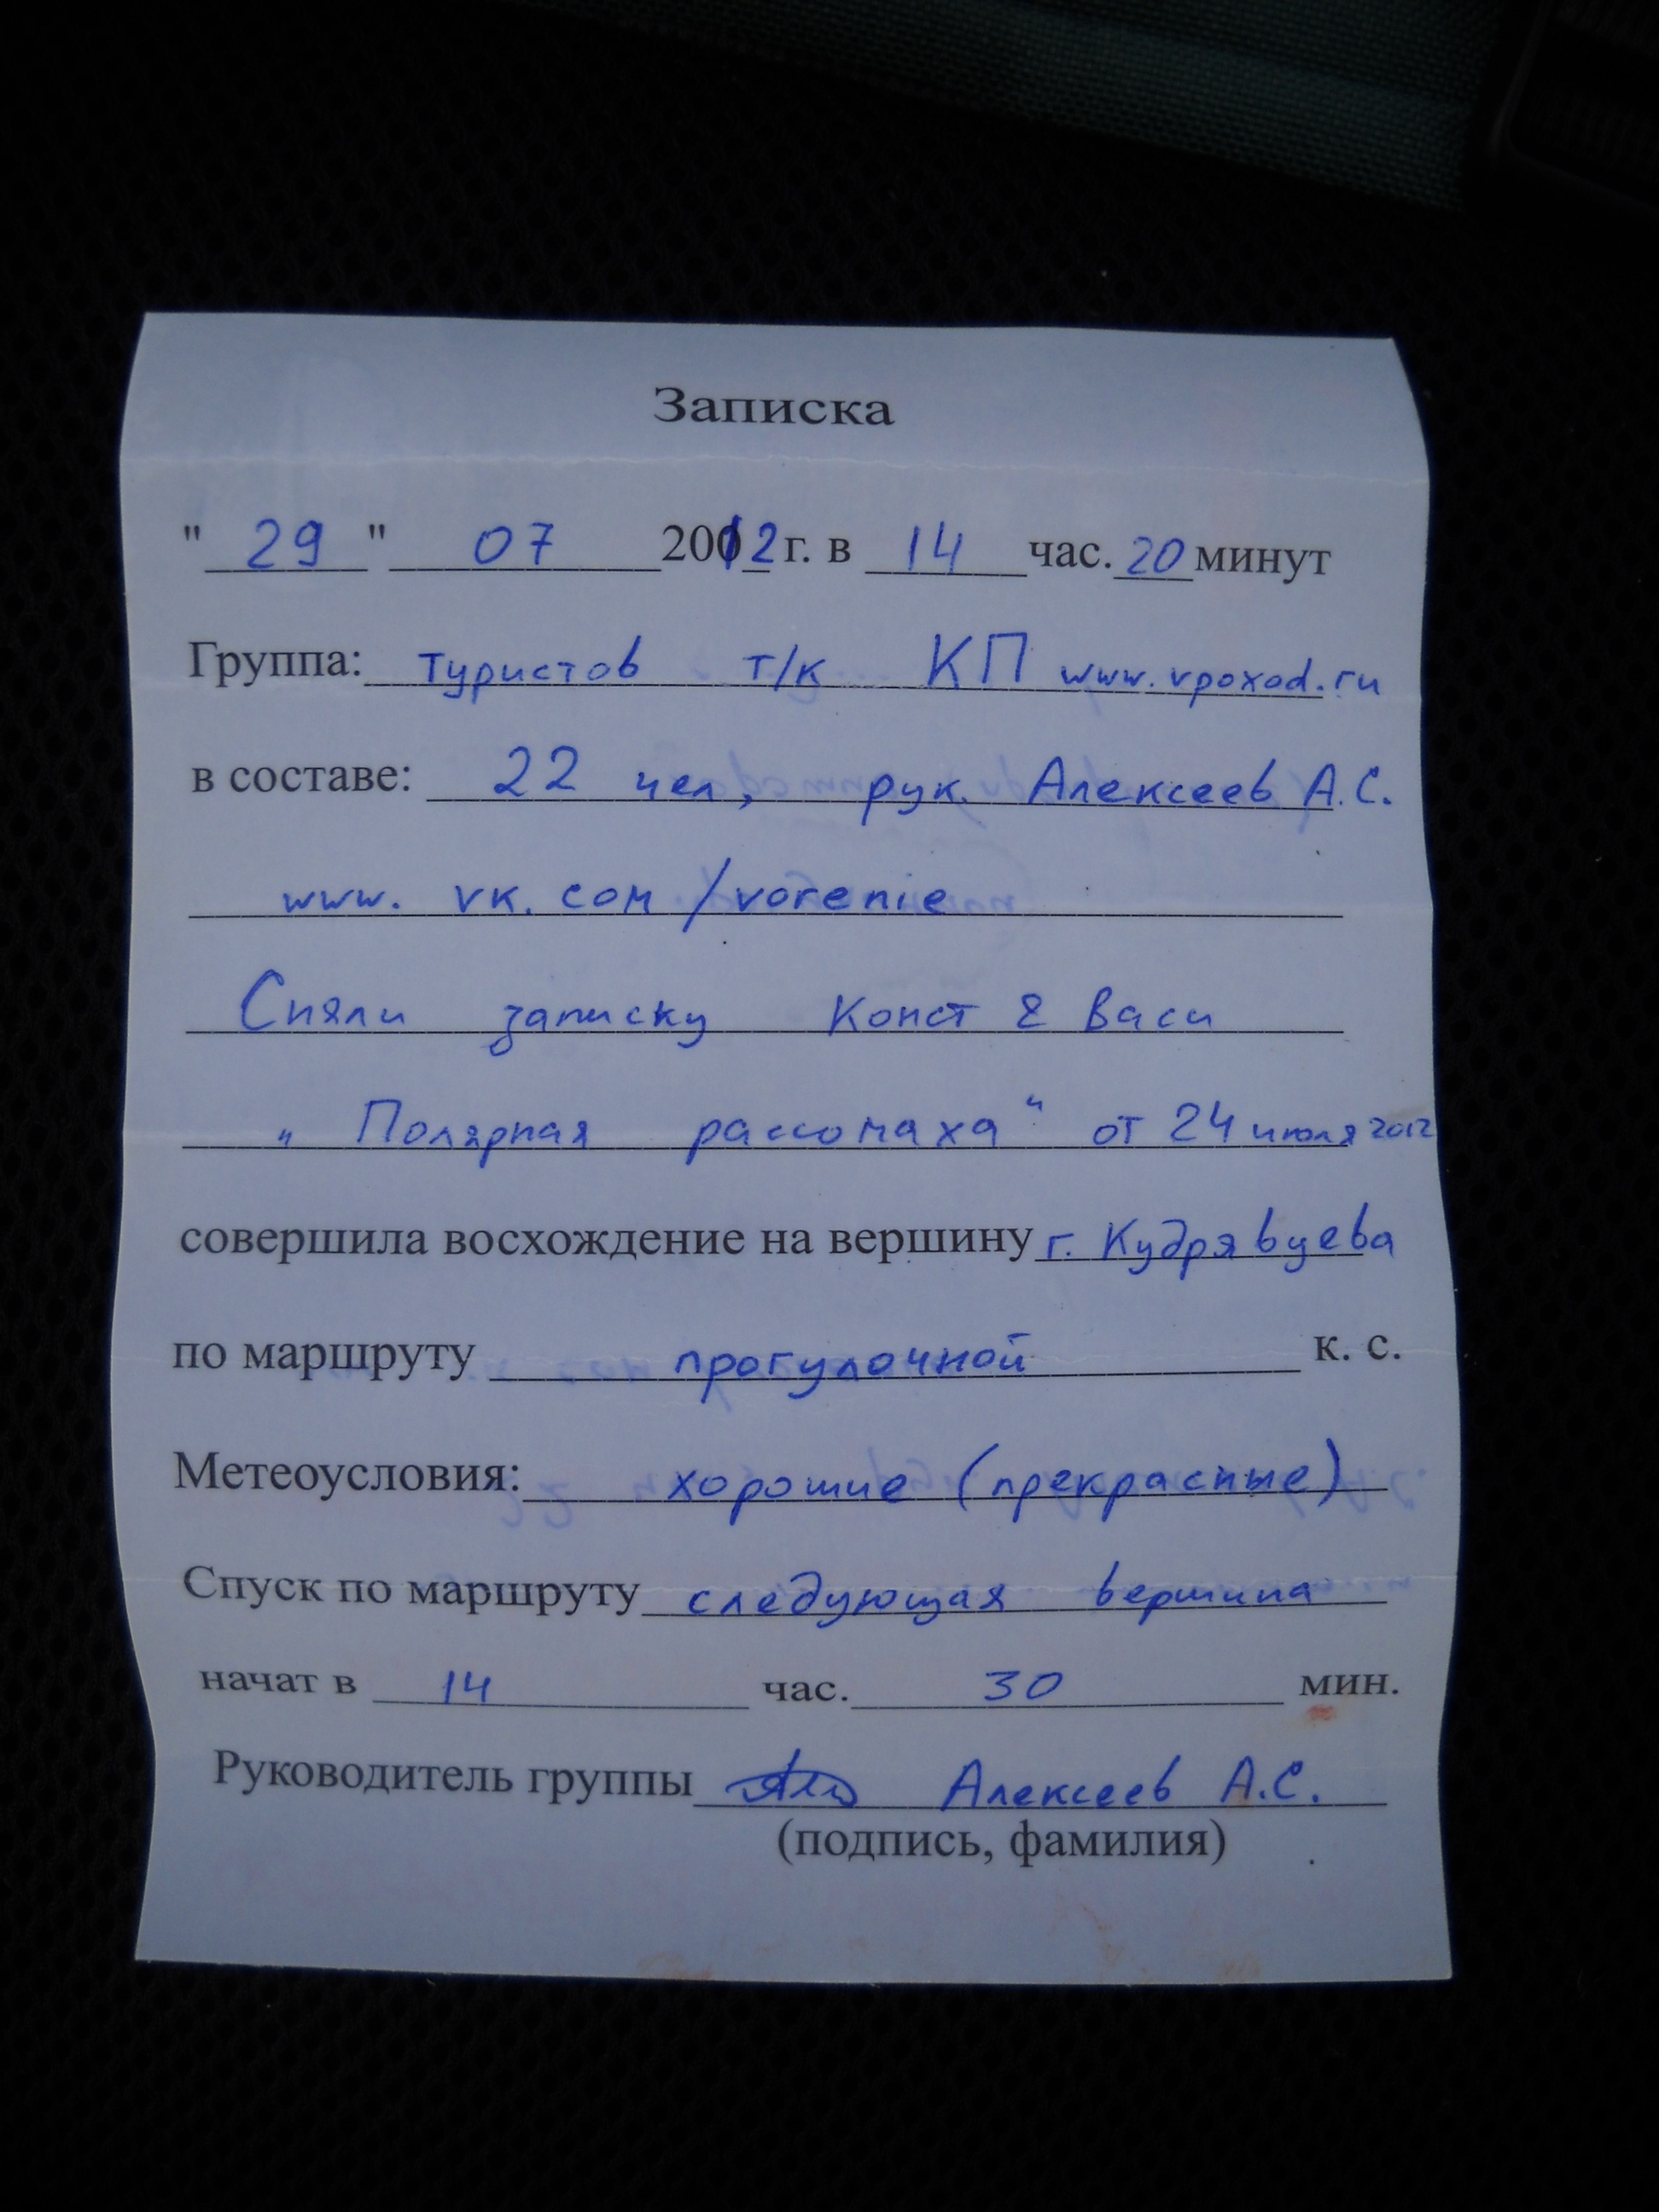 Записка
" 29 " 07 2012 г. в 14 час. 20 минут
Группа: туристов т/к КП www.vpoxod.ru
в составе: 22 чел, рук. Алексеев А.С.
www. vk. com /vorenie
Сняли записку Конст & Васи
„ Полярная рассомаха " от 24 июля 2012
совершила восхождение на вершину г. Кудрявцева
по маршруту прогулочной к. с.
Метеоусловия: хорошие (прекрасные)
Спуск по маршруту следующая вершина
начат в 14 час. 30 мин.
Руководитель группы Алексеев А.С.
(подпись, фамилия)